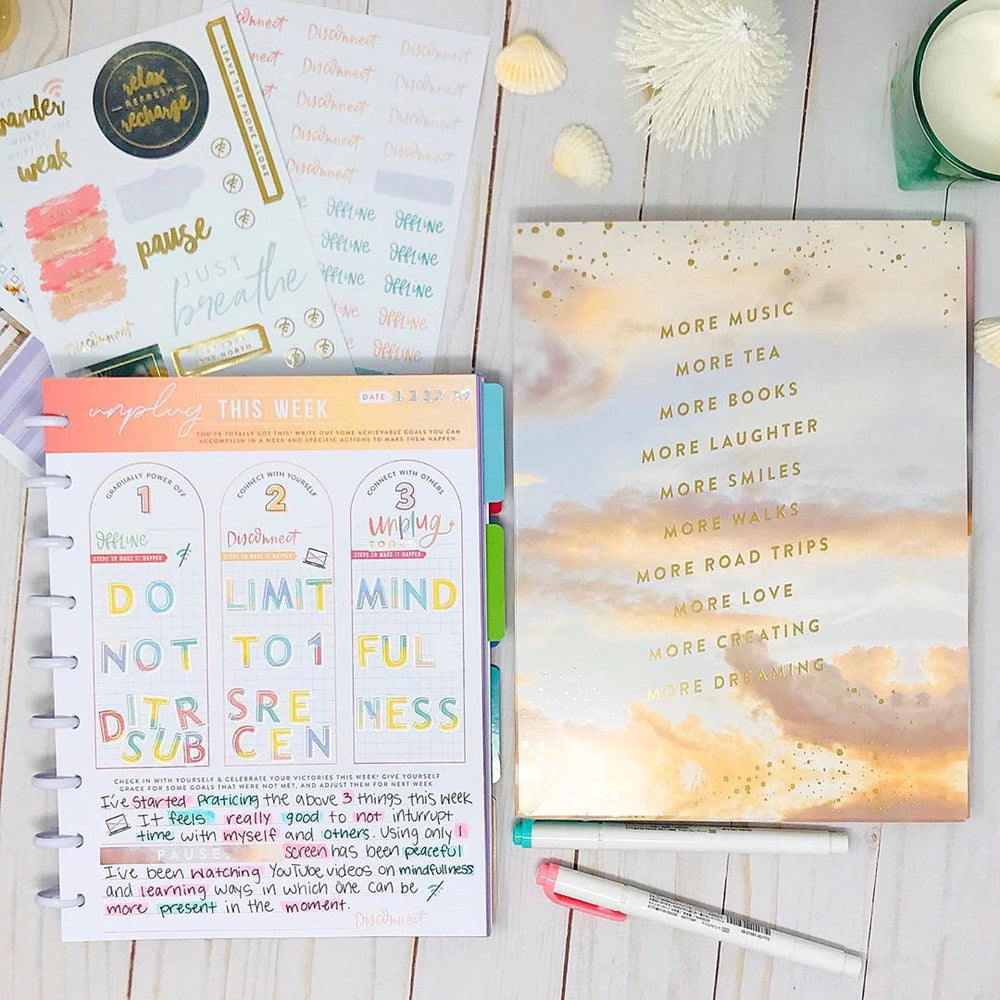 relax
REFRESH
recharge
LEAVE THE PHONE ALONE
wander
WHERE THE
weak
pause
JUST
breathe
Disconnect
Disconnect
Disconnect
Disconnect
Disconnect
Disconnect
Disconnect
Disconnect
Disconnect
Disconnect
Disconnect
OFFLINE
OFFLINE
OFFLINE
OFFLINE
OFFLINE
OFFLINE
OFFLINE
OFFLINE
OFFLINE
OFFLINE
Disconnect
unplug THIS WEEK
DATE
YOU'VE TOTALLY GOT THIS! WRITE OUT SOME ACHIEVABLE GOALS YOU CAN
ACCOMPLISH IN A WEEK AND SPECIFIC ACTIONS TO MAKE THEM HAPPEN.
GRADUALLY POWER OFF
1
OFFLINE
STEPS TO MAKE IT HAPPEN
DO
NOT
DITR
SUB
CONNECT WITH YOURSELF
2
Disconnect
STEPS TO MAKE IT HAPPEN
LIMIT
TO 1
SRE
CEN
CONNECT WITH OTHERS
3
unplug
TODAY
STEPS TO MAKE IT HAPPEN
MIND
FUL
NESS
CHECK IN WITH YOURSELF & CELEBRATE YOUR VICTORIES THIS WEEK! GIVE YOURSELF
GRACE FOR SOME GOALS THAT WERE NOT MET, AND ADJUST THEM FOR NEXT WEEK.
I've started praticing the above 3 things this week
It feels really good to not inturrupt
time with myself and others. Using only 1
PAUSE. screen has been peaceful
I've been watching YouTube videos on mindfullness
and learning ways in which one can be
more present in the moment.
Disconnect
MORE MUSIC
MORE TEA
MORE BOOKS
MORE LAUGHTER
MORE SMILES
MORE WALKS
MORE ROAD TRIPS
MORE LOVE
MORE CREATING
MORE DREAMING